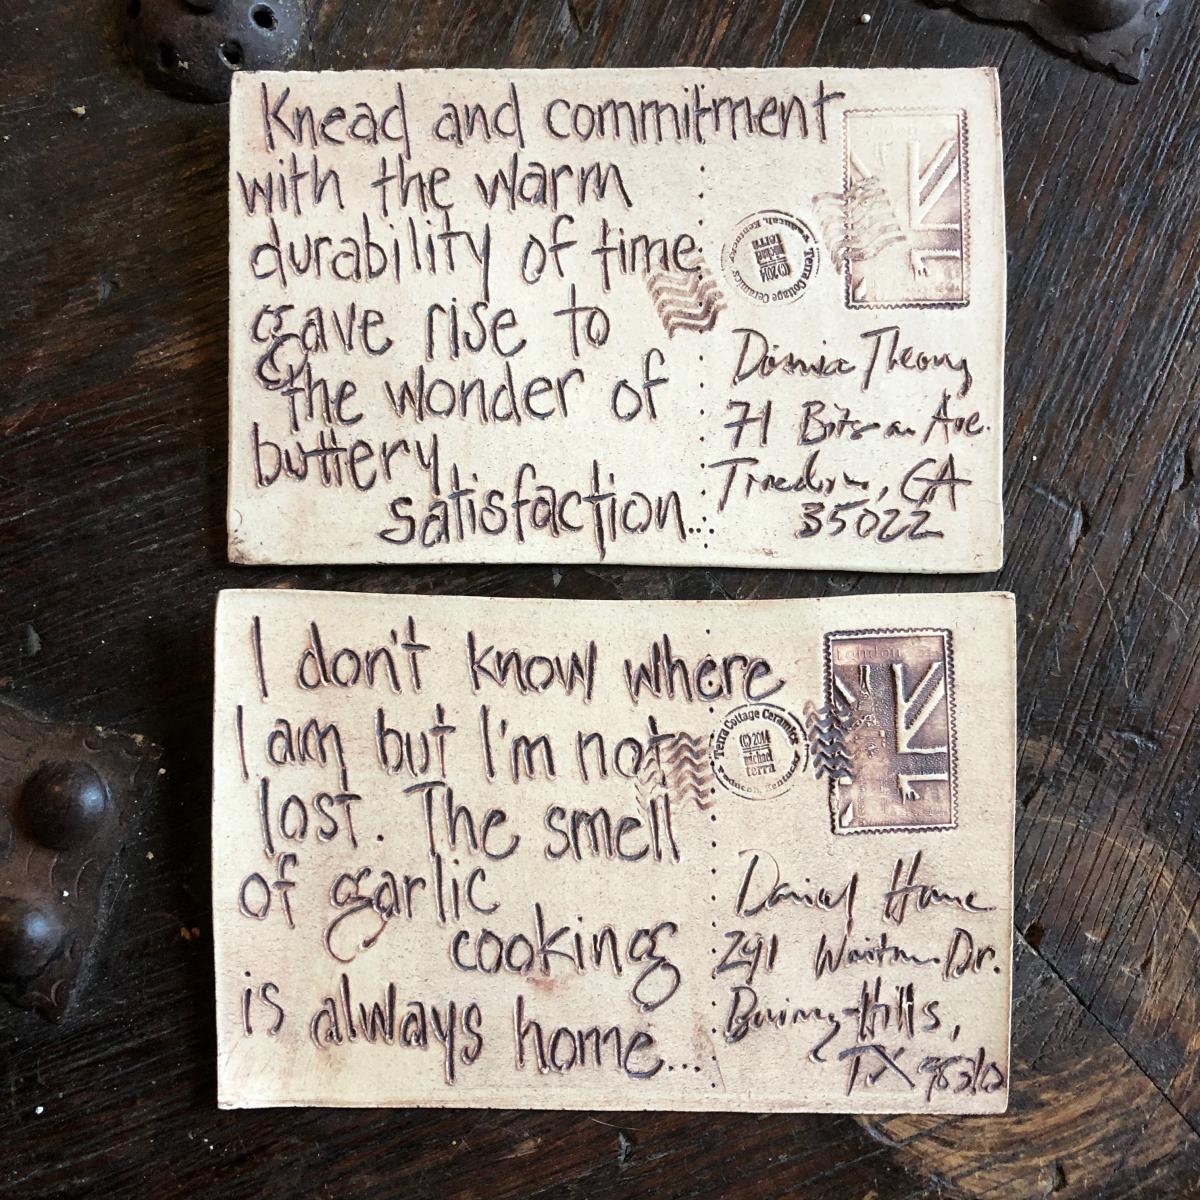 Knead and commitment
with the warm
durability of time
gave rise to
the wonder of
buttery
satisfaction...
Terra Cottage Ceramics
(C) 2014
michael
terra
Paducah, Kentucky
London
71 Ave.
CA
35022
I don't know where
I am but I'm not
lost. The smell
of garlic
cooking
is always home...
Terra Cottage Ceramics
(C) 2014
michael
terra
Paducah, Kentucky
London
Daniel Home
291 Dr.
Hills,
TX